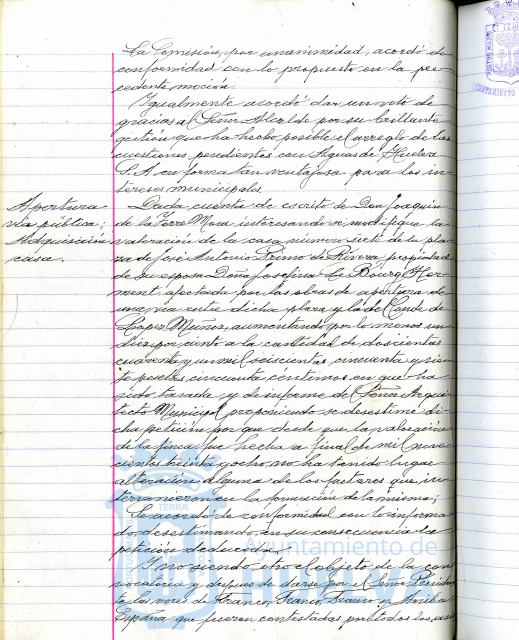 La Comisión, por unanimidad, acordó de
conformidad con lo propuesto en la pre-
cedente moción.
Igualmente acordó dar un voto de
gracias al Señor Alcalde por su brillante
gestión que ha hecho posible el arreglo de las
cuestiones pendientes con Aguas de Huelva
S.A. en forma tan ventajosa para los in-
tereses municipales.
Apertura
vía pública;
Adquisición
casa.
Dada cuenta de escrito de Don Joaquín
de la Torre Mora interesando se modifique la
valoración de la casa número siete de la pla-
za de José Antonio Primo de Rivera propiedad
de su esposa Doña Josefina Le Bourg Her-
ment afectada por las obras de apertura de
una vía entre dicha plaza y la del Conde de
López Muñoz, aumentando por lo menos un
diez por ciento a la cantidad de doscientas
cuarenta y un mil seiscientas cincuenta y sie-
te pesetas cincuenta céntimos en que ha
sido tasada, y de informe del Señor Arqui-
tecto Municipal proponiendo se desestime di-
cha petición por que desde que la valoración
de la finca fue hecha a final de mil nove-
cientos treinta y ocho, no ha tenido lugar
alteración alguna de los factores que in-
tervinieron en la formación de la misma;
Se acordó de conformidad con lo informa-
do, desestimando, en su consecuencia la
petición deducida.
Y no siendo otro el objeto de la con-
vocatoria y después de darse por el Señor Presiden-
te las voces de Franco, Franco, Franco y Arriba
España que fueron contestadas por todos los
TERRÆ
Ayuntamiento de
HUELVA